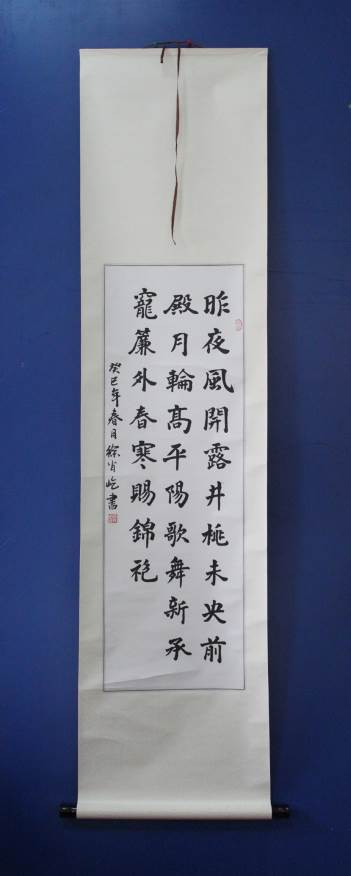 昨夜風開露井桃未央前
殿月輪高平陽歌舞新承
寵簾外春寒賜錦袍
癸巳年春月徐肖屹書